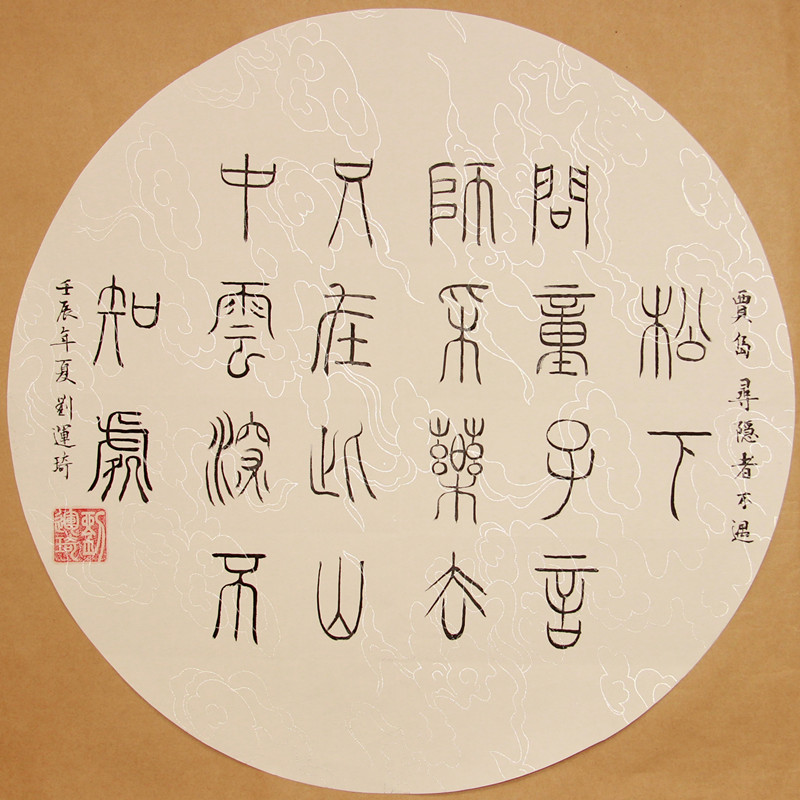 賈島 尋隱者不遇
松下
問童子言
師采藥去
只在此山
中雲深不
知處
壬辰年夏劉運琦
劉運琦